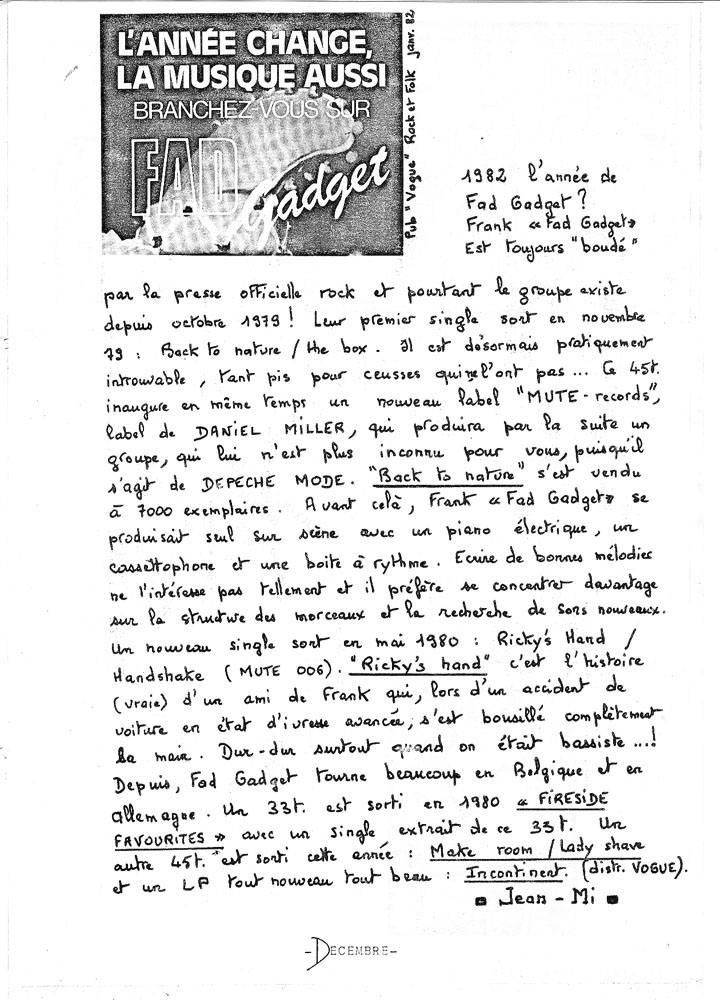 L'ANNÉE CHANGE,
LA MUSIQUE AUSSI
BRANCHEZ-VOUS SUR
FAD
Gadget
Pub "Vogue" Rock et Folk janv. 82
1982 l'année de
Fad Gadget ?
Frank « Fad Gadget»
Est toujours "boudé"
par la presse officielle rock et pourtant le groupe existe
depuis octobre 1979 ! Leur premier single sort en novembre
79 : Back to nature / the box. Il est désormais pratiquement
introuvable, tant pis pour ceusses qui ne l'ont pas ... Ce 45t.
inaugure en même temps un nouveau label "MUTE-records",
label de DANIEL MILLER, qui produira par la suite un
groupe, qui lui n'est plus inconnu pour vous, puisqu'il
s'agit de DEPECHE MODE. "Back to nature" s'est vendu
à 7000 exemplaires. Avant celà, Frank « Fad Gadget» se
produisait seul sur scène avec un piano électrique, un
cassettophone et une boite à rythme. Ecrire de bonnes mélodies
ne l'intéresse pas tellement et il préfère se concentrer davantage
sur la structure des morceaux et la recherche de sons nouveaux.
Un nouveau single sort en mai 1980 : Ricky's Hand /
Handshake ( MUTE 006). "Ricky's hand" c'est l'histoire
(vraie) d'un ami de Frank qui, lors d'un accident de
voiture en état d'ivresse avancée, s'est bousillé complètement
la main. Dur-dur surtout quand on était bassiste ...!
Depuis, Fad Gadget tourne beaucoup en Belgique et en
Allemagne. Un 33t. est sorti en 1980 « FIRESIDE
FAVOURITES » avec un single extrait de ce 33t. Un
autre 45t. est sorti cette année : Make room / Lady shave
et un LP tout nouveau tout beau : Incontinent. (distr. VOGUE).
Jean-Mi
-DECEMBRE-